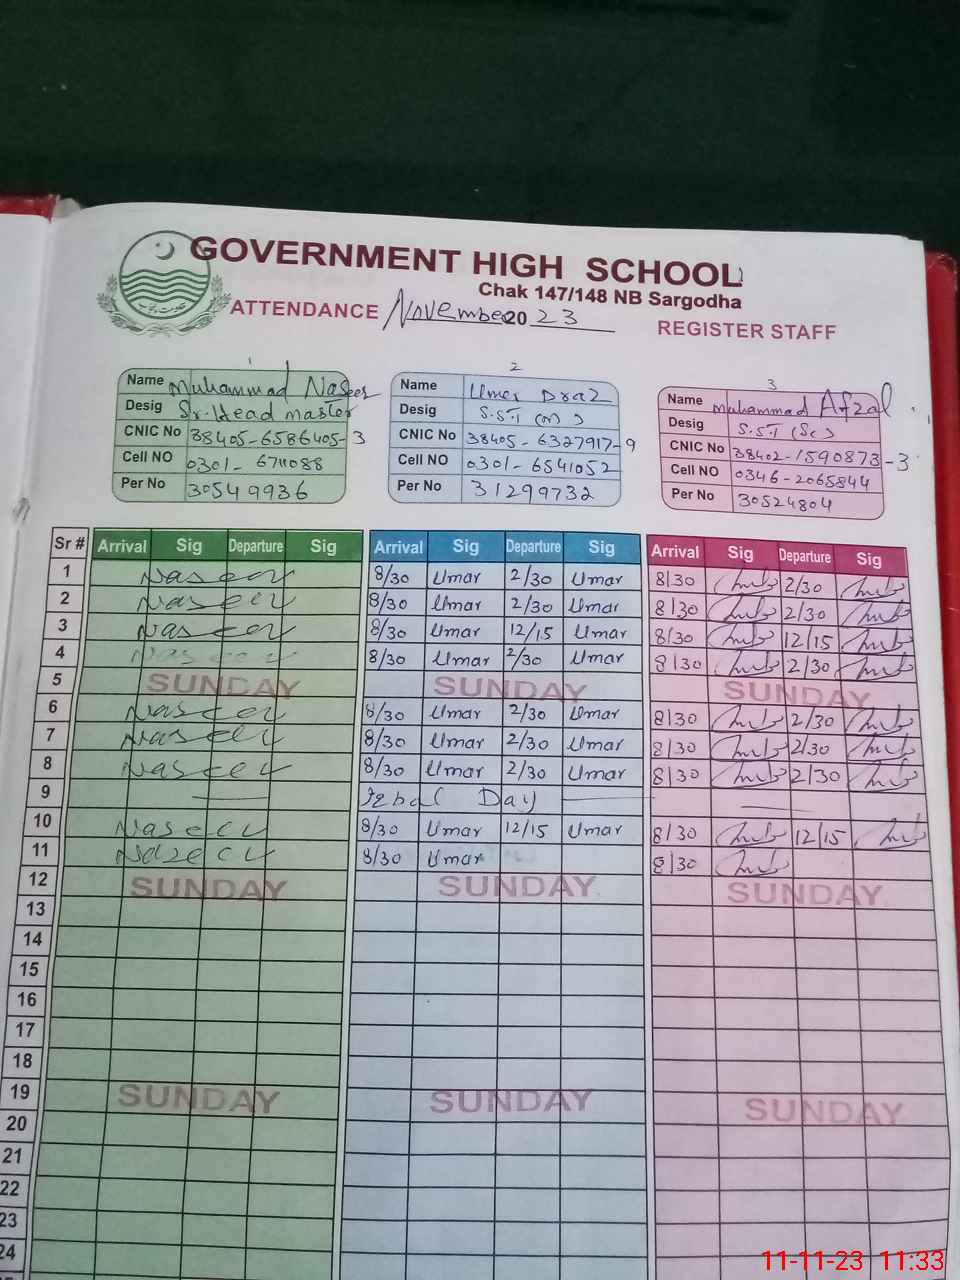 GOVERNMENT HIGH SCHOOL
Chak 147/148 NB Sargodha
ATTENDANCE November 2023 REGISTER STAFF
1
Name Muhammad Naseer
Desig Sr. Head master
CNIC No 38405-6586405-3
Cell NO 0301-6711088
Per No 30549936
2
Name Umer Draz
Desig S.S.T (M)
CNIC No 38405-6327917-9
Cell NO 0301-6541052
Per No 31299732
3
Name Muhammad Afzal
Desig S.S.T (Sc)
CNIC No 38402-1590873-3
Cell NO 0346-2065844
Per No 30524804
Sr # Arrival Sig Departure Sig Arrival Sig Departure Sig Arrival Sig Departure Sig
1 Naseer 8/30 Umar 2/30 Umar 8/30 2/30
2 Naseer 8/30 Umar 2/30 Umar 8/30 2/30
3 Naseer 8/30 Umar 12/15 Umar 8/30 12/15
4 Naseer 8/30 Umar 2/30 Umar 8/30 2/30
5 SUNDAY SUNDAY SUNDAY
6 Naseer 8/30 Umar 2/30 Umar 8/30 2/30
7 Naseer 8/30 Umar 2/30 Umar 8/30 2/30
8 Naseer 8/30 Umar 2/30 Umar 8/30 2/30
9 Iqbal Day
10 Naseer 8/30 Umar 12/15 Umar 8/30 12/15
11 Naseer 8/30 Umar 8/30
12 SUNDAY SUNDAY SUNDAY
13
14
15
16
17
18
19 SUNDAY SUNDAY SUNDAY
20
21
22
23
24
11-11-23 11:33